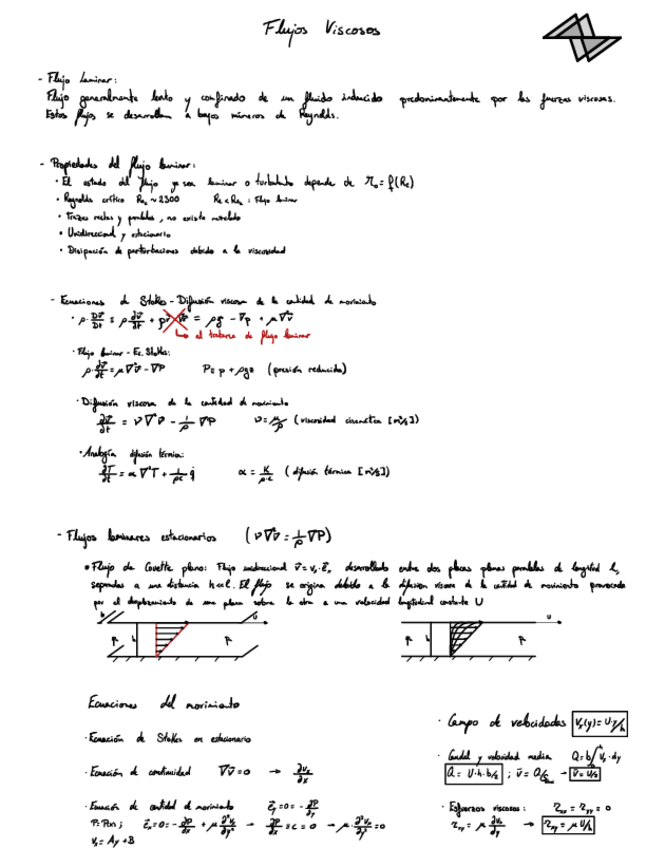 Flujos Viscosos
- Flujo Laminar:
Flujo generalmente lento y confinado de un fluido inducido predominantemente por las fuerzas viscosas.
Estos flujos se desarrollan a bajos números de Reynolds.
- Propiedades del flujo laminar:
· El estado del flujo ya sea laminar o turbulento depende de = f(Re)
· Reynolds crítico Re ~ 2300 Re < Re : Flujo laminar
· Trazas rectas y paralelas, no existe mezclado
· Unidireccional y estacionario
· Disipación de perturbaciones debido a la viscosidad
- Ecuaciones de Stokes - Difusión viscosa de la cantidad de movimiento
· ρ Dv/Dt = ρ ∂v/∂t + = ρg - ∇p + μ∇²v
↳ al tratarse de flujo laminar
· Flujo laminar - Ec. Stokes:
ρ ∂v/∂t = μ∇²v - ∇P P = p + ρgz (presión reducida)
· Difusión viscosa de la cantidad de movimiento
∂v/∂t = ν∇²v - 1/ρ ∇P ν = μ/ρ (viscosidad cinemática [m²/s])
· Analogía difusión térmica:
∂T/∂t = α∇²T + 1/ρc q̇ α = K/ρ·c (difusión térmica [m²/s])
- Flujos laminares estacionarios (ν∇²v = 1/ρ ∇P)
• Flujo de Couette plano: Flujo unidireccional v = vₓ·eₓ desarrollado entre dos placas planas paralelas de longitud L,
separadas a una distancia h<<L. El flujo se origina debido a la difusión viscosa de la cantidad de movimiento provocada
por el desplazamiento de una placa sobre la otra a una velocidad longitudinal constante U
b U U
P h P P h P
Ecuaciones del movimiento
· Campo de velocidades vₓ(y) = U·y/h
· Ecuación de Stokes en estacionario
· Caudal y velocidad media Q = b∫ vₓ·dy
Q = U·h·b/2 ; v̄ = Q/ → v̄ = U/2
· Ecuación de continuidad ∇v = 0 → ∂vₓ/∂x
· Ecuación de cantidad de movimiento = 0 = -∂P/∂y
P = P(x) ; = 0 = -∂P/∂x + μ ∂²vₓ/∂y² → ∂P/∂x = c = 0 → μ·∂²vₓ/∂y² = 0
vₓ = Ay + B
· Esfuerzos viscosos: τxx = τyy = 0
τxy = μ ∂vₓ/∂y → τxy = μ U/h